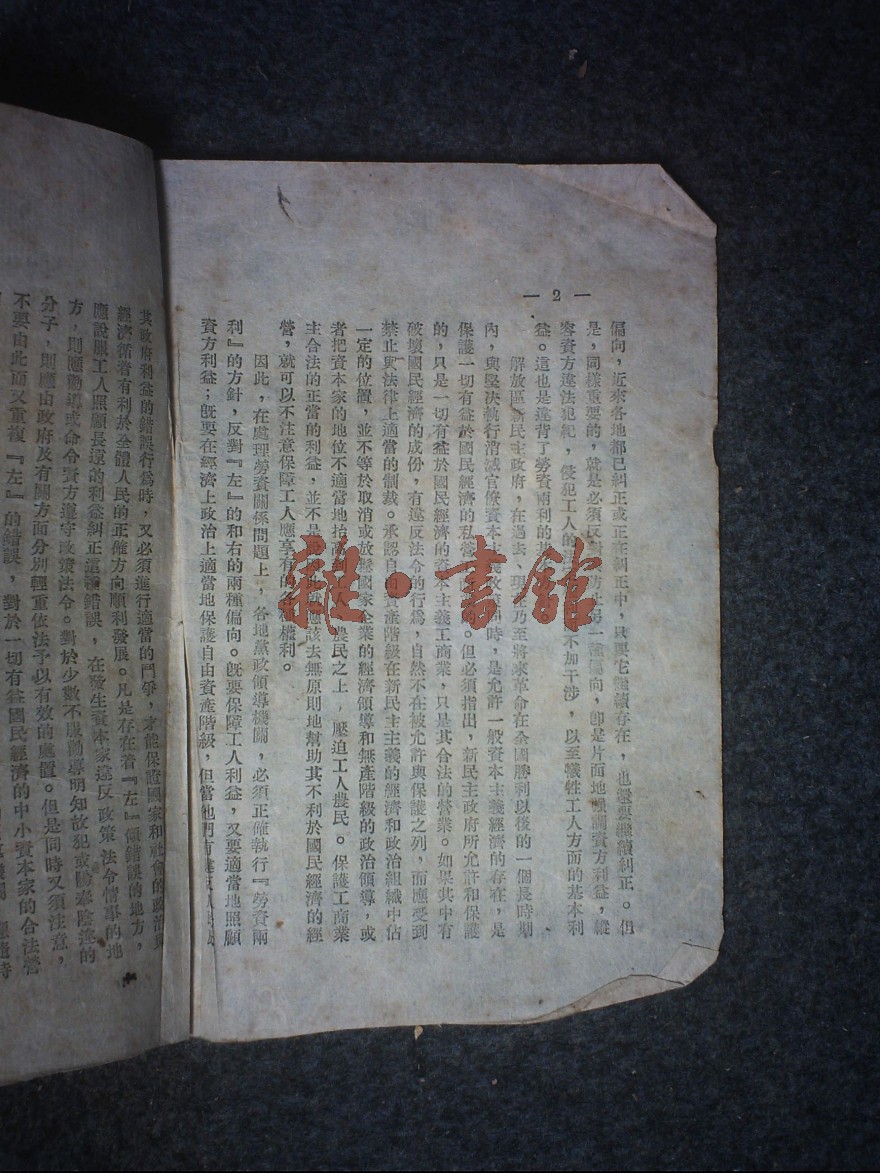 — 2 —
偏向，近來各地都已糾正或正在糾正中，只要它繼續存在，也還要繼續糾正。但
是，同樣重要的，就是必須反對防止另一種偏向，即是片面地強調資方利益，縱
容資方違法犯紀，侵犯工人的不加干涉，以至犧牲工人方面的基本利
益。這也是違背了勞資兩利的
解放區新民主政府，在過去、現在乃至將來革命在全國勝利以後的一個長時期
內，與堅決執行消滅官僚資本主義政策同時，是允許一般資本主義經濟的存在，是
保護一切有益於國民經濟的私營的。但必須指出，新民主政府所允許和保護
的，只是一切有益於國民經濟的資本主義工商業，只是其合法的營業。如果其中有
破壞國民經濟的成份，有違反法令的行為，自然不在被允許與保護之列，而應受到
禁止與法律上適當的制裁。承認自由資產階級在新民主主義的經濟和政治組織中佔
一定的位置，並不等於取消或放鬆國家企業的經濟領導和無產階級的政治領導，或
者把資本家的地位不適當地抬高到工人農民之上，壓迫工人農民。保護工商業
主合法的正當的利益，並不是說因此就應該去無原則地幫助其不利於國民經濟的經
營，就可以不注意保障工人應享有的各種權利。
因此，在處理勞資關係問題上，各地黨政領導機關，必須正確執行『勞資兩
利』的方針，反對『左』的和右的兩種偏向。既要保障工人利益，又要適當地照顧
資方利益；既要在經濟上政治上適當地保護自由資產階級，但當他們有違反
其政府利益的錯誤行為時，又必須進行適當的鬥爭，才能保證國家和社會的政治與
經濟循着有利於全體人民的正確方向順利發展。凡是存在着『左』傾錯誤的地方，
應說服工人照顧長遠的利益糾正這種錯誤，在發生資本家違反政策法令情事的地
方，則應勸導或命令資方遵守政策法令。對於少數不服勸導明知故犯或陽奉陰違的
分子，則應由政府及有關方面分別輕重依法予以有效的處置。但是同時又須注意，
不要由此而又重複『左』的錯誤，對於一切有益國民經濟的中小資本家的合法營
雜·書館